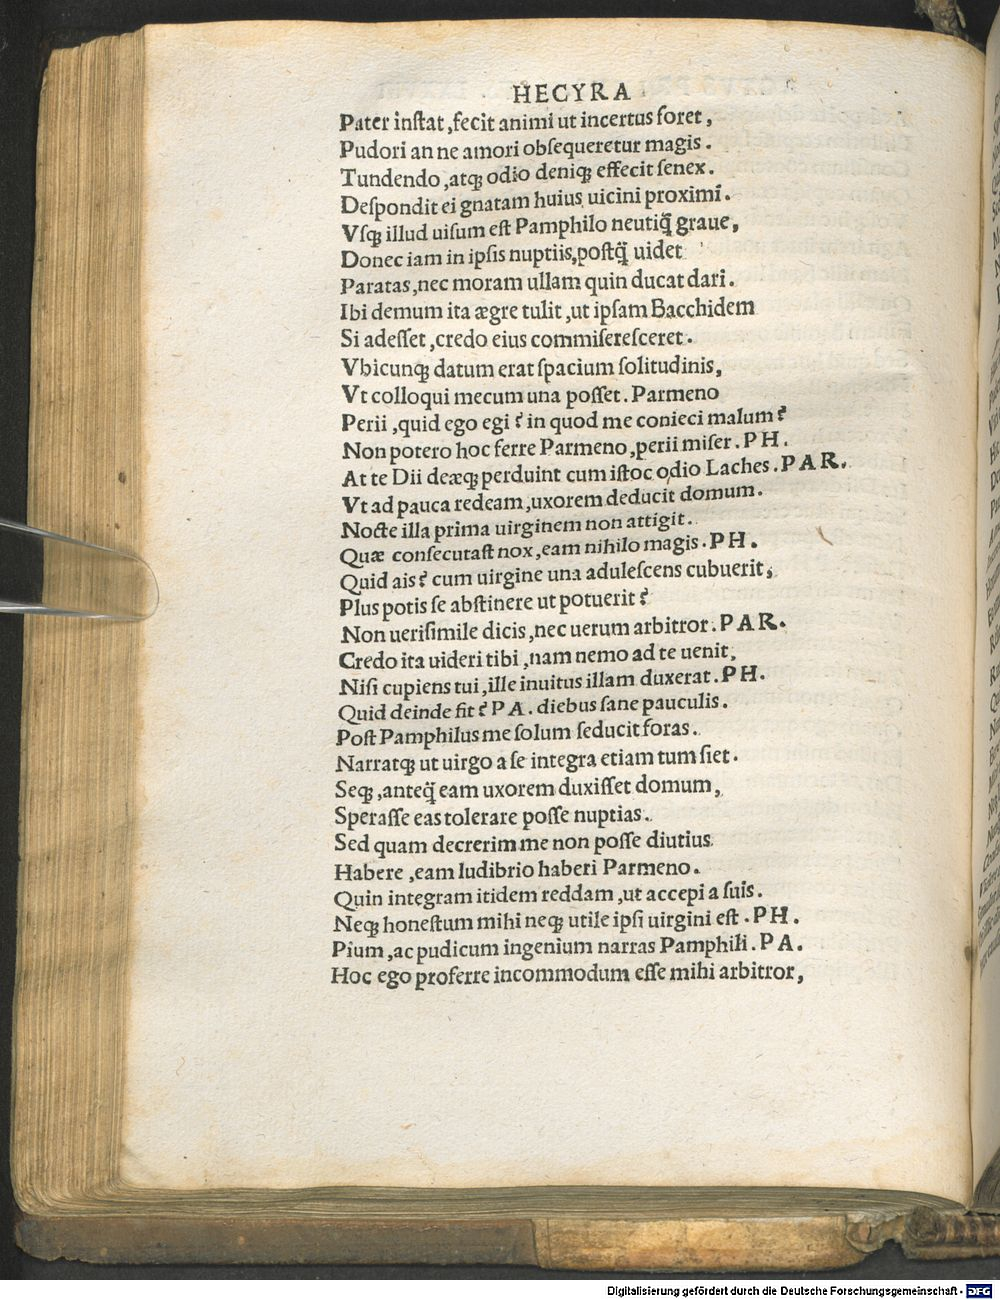 HECYRA
Pater inſtat ,fecit animi ut incertus foret ,
Pudori an ne amori obſequeretur magis .
Tundendo ,atqꝫ odio deniqꝫ effecit ſenex .
Deſpondit ei gnatam huius uicini proximi .
Vſqꝫ illud uiſum eſt Pamphilo neutiq̃ graue ,
Donec iam in ipſis nuptiis,poſtq̃ uidet
Paratas ,nec moram ullam quin ducat dari .
Ibi demum ita ægre tulit ,ut ipſam Bacchidem
Si adeſſet ,credo eius commiſereſceret .
Vbicunqꝫ datum erat ſpacium ſolitudinis,
Vt colloqui mecum una poſſet . Parmeno
Perii ,quid ego egi ? in quod me conieci malum ?
Non potero hoc ferre Parmeno ,perii miſer . PH .
At te Dii deæqꝫ perduint cum iſtoc odio Laches . PAR .
Vt ad pauca redeam ,uxorem deducit domum .
Nocte illa prima uirginem non attigit .
Quæ conſecutaſt nox ,eam nihilo magis . PH .
Quid ais ? cum uirgine una aduleſcens cubuerit ,
Plus potis ſe abſtinere ut potuerit ?
Non ueriſimile dicis ,nec uerum arbitror . PAR .
Credo ita uideri tibi ,nam nemo ad te uenit ,
Niſi cupiens tui ,ille inuitus illam duxerat . PH .
Quid deinde fit ? PA . diebus ſane pauculis .
Poſt Pamphilus me ſolum ſeducit foras .
Narratqꝫ ut uirgo a ſe integra etiam tum ſiet .
Seqꝫ ,anteq̃ eam uxorem duxiſſet domum ,
Speraſſe eas tolerare poſſe nuptias .
Sed quam decrerim me non poſſe diutius
Habere ,eam ludibrio haberi Parmeno .
Quin integram itidem reddam ,ut accepi a ſuis .
Neqꝫ honeſtum mihi neqꝫ utile ipſi uirgini eſt . PH .
Pium ,ac pudicum ingenium narras Pamphili . PA .
Hoc ego proferre incommodum eſſe mihi arbitror ,
Digitalisierung gefördert durch die Deutsche Forschungsgemeinschaft - DFG